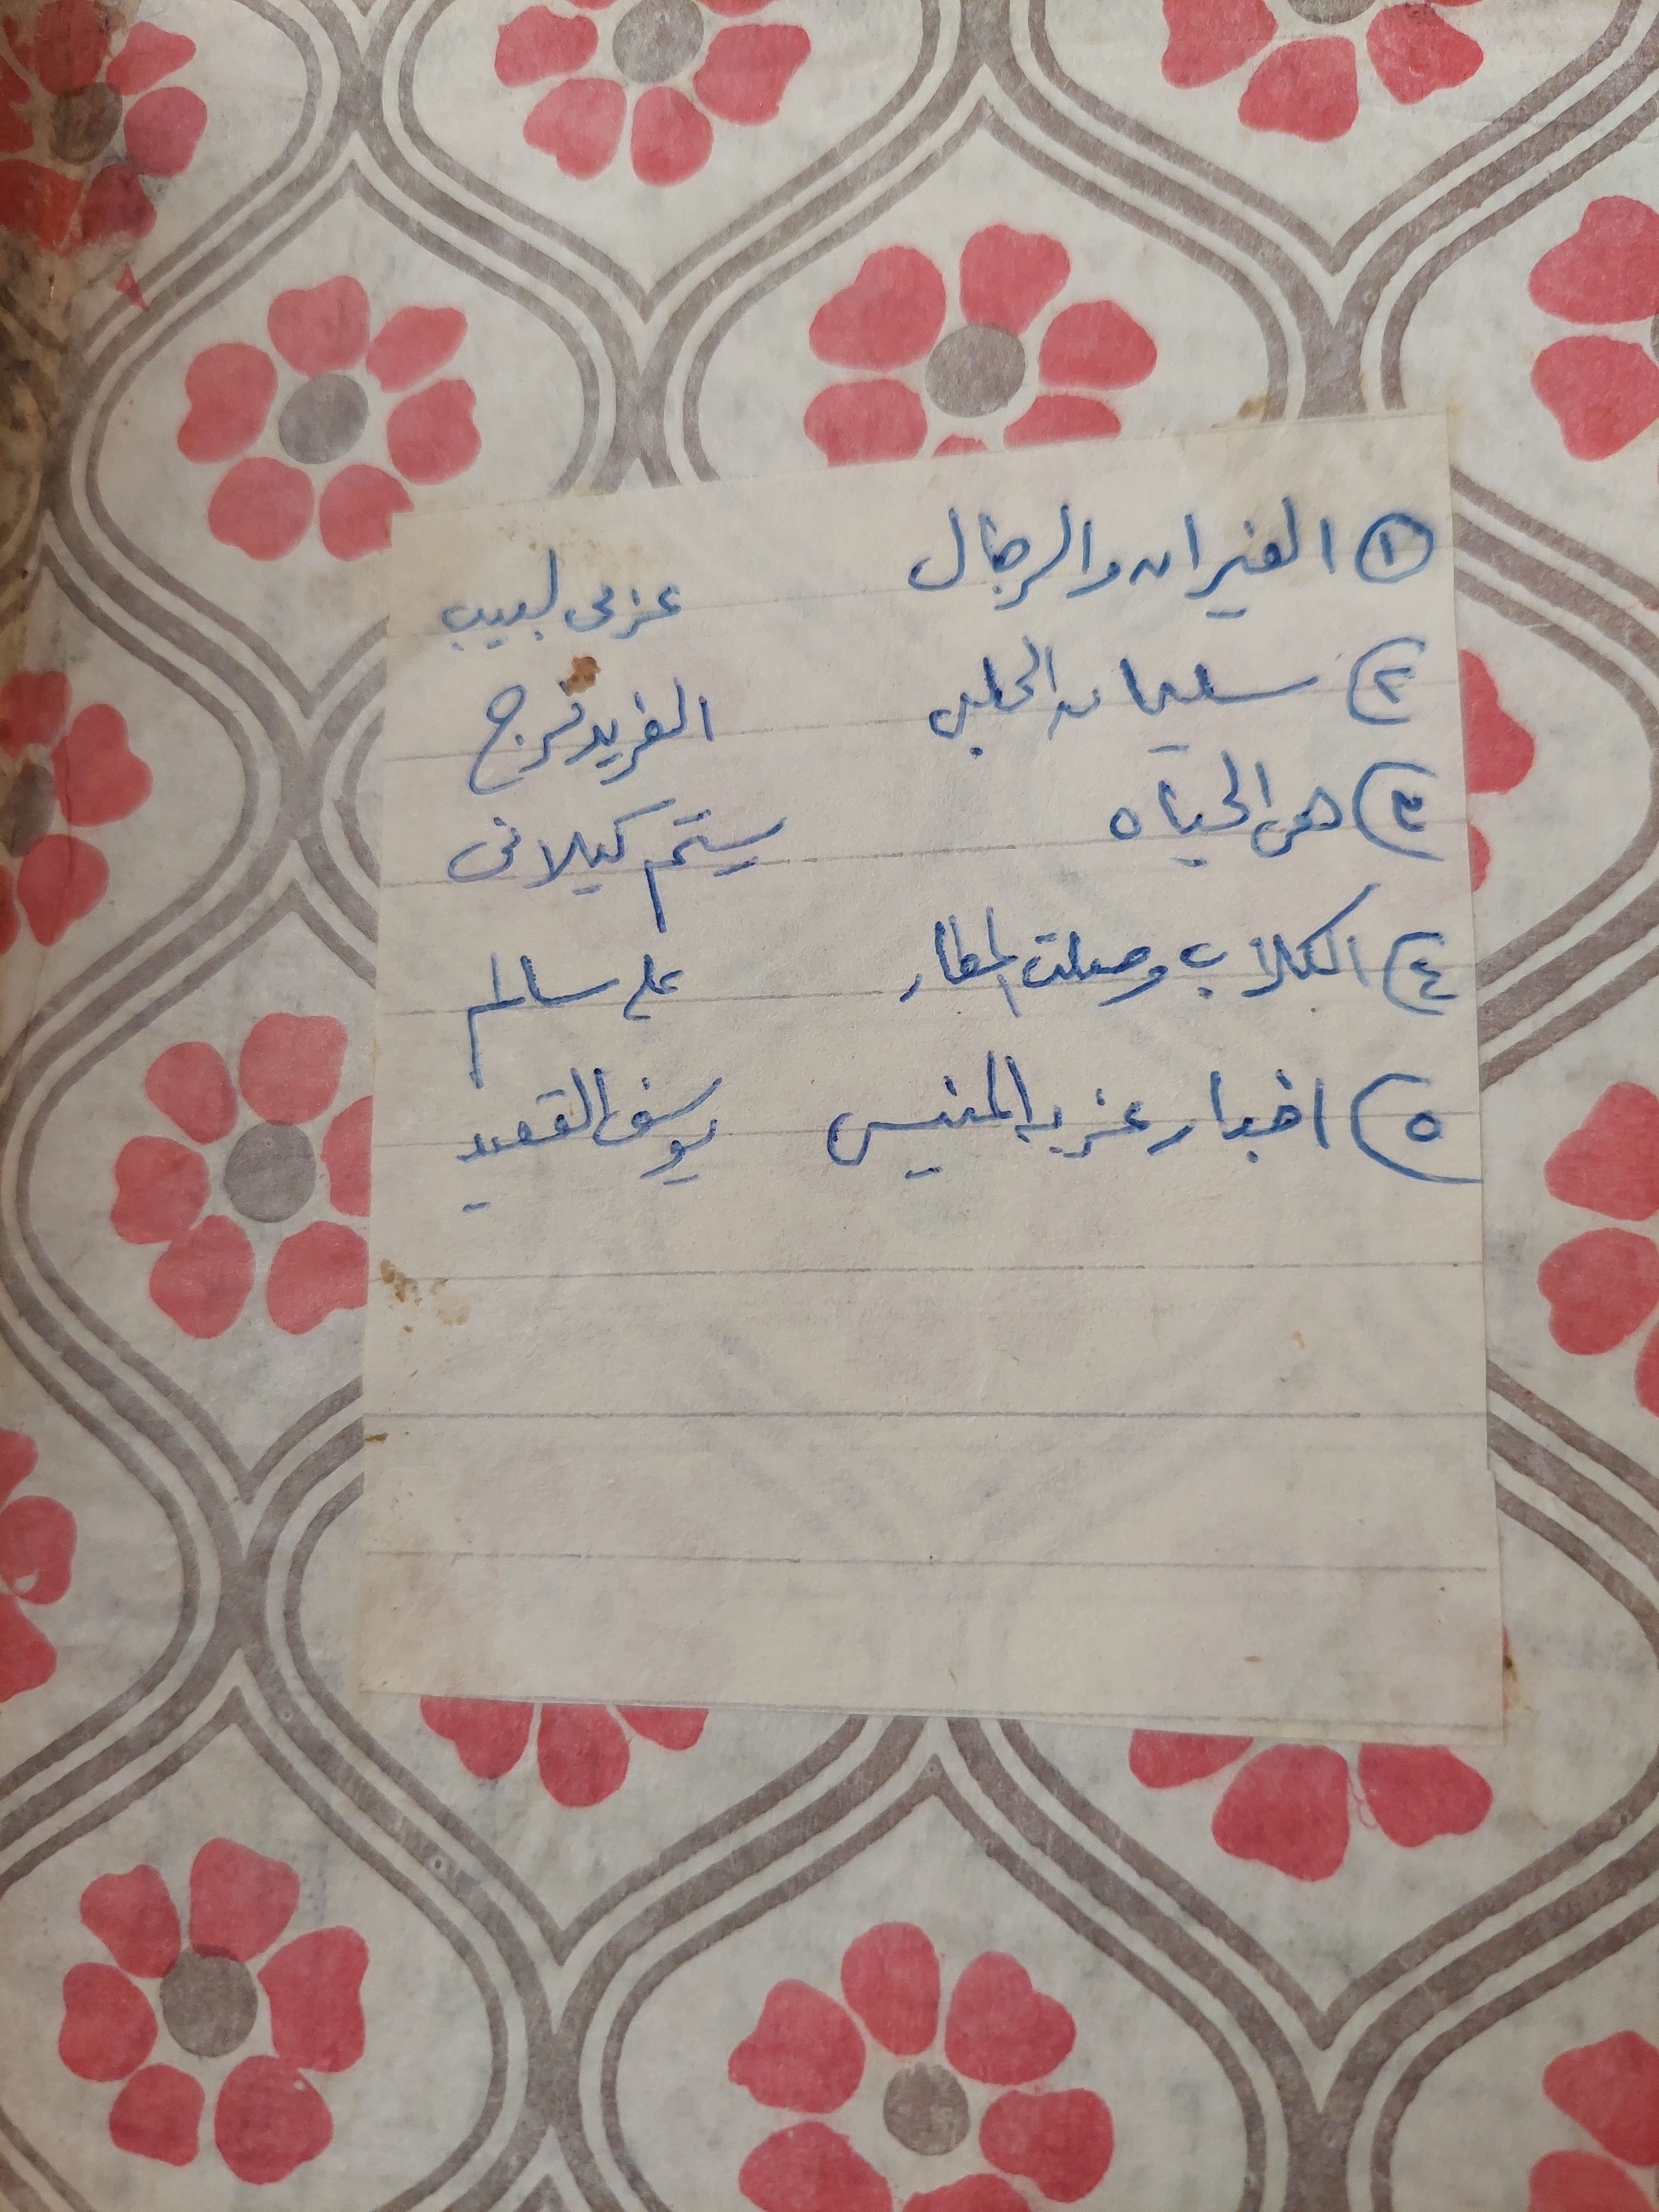 ١ الفيران والرجال عزمى لبيب
٢) سليمان الحلبى الفريد فرج
٣) هى الحياه رستم كيلانى
٤) الكلاب وصلت المطار على سالم
٥) اخبار عزبه المنيسى يوسف القعيد